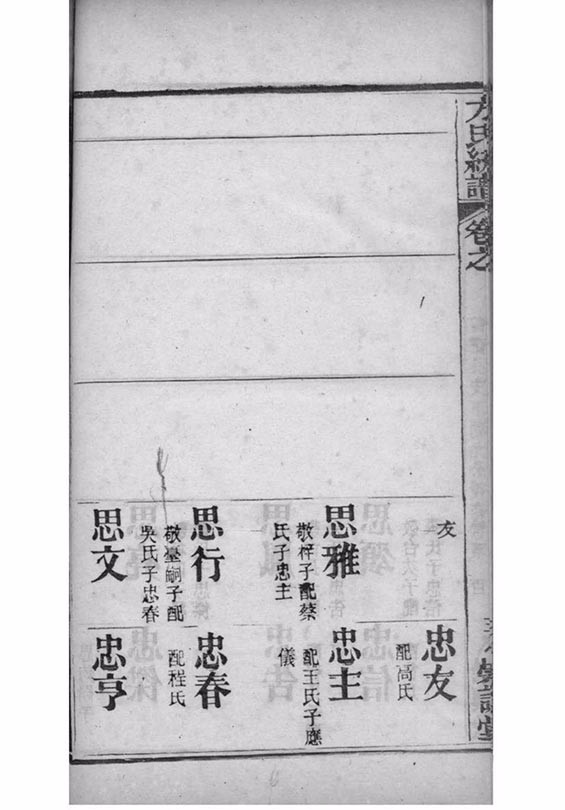 方氏統譜
卷之
友
忠友
配高氏
思雅
敬梓子配蔡
氏子忠主
忠主
配王氏子應
儀
思行
敬臺嗣子配
吳氏子忠春
忠春
配程氏
思文
忠亨